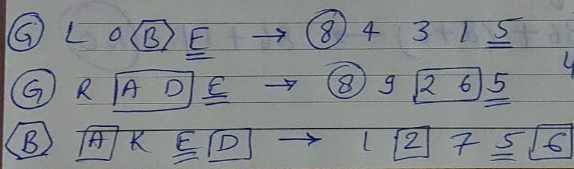 G L O B E → 8 4 3 1 5
G R A D E → 8 9 2 6 5
B A K E D → 1 2 7 5 6